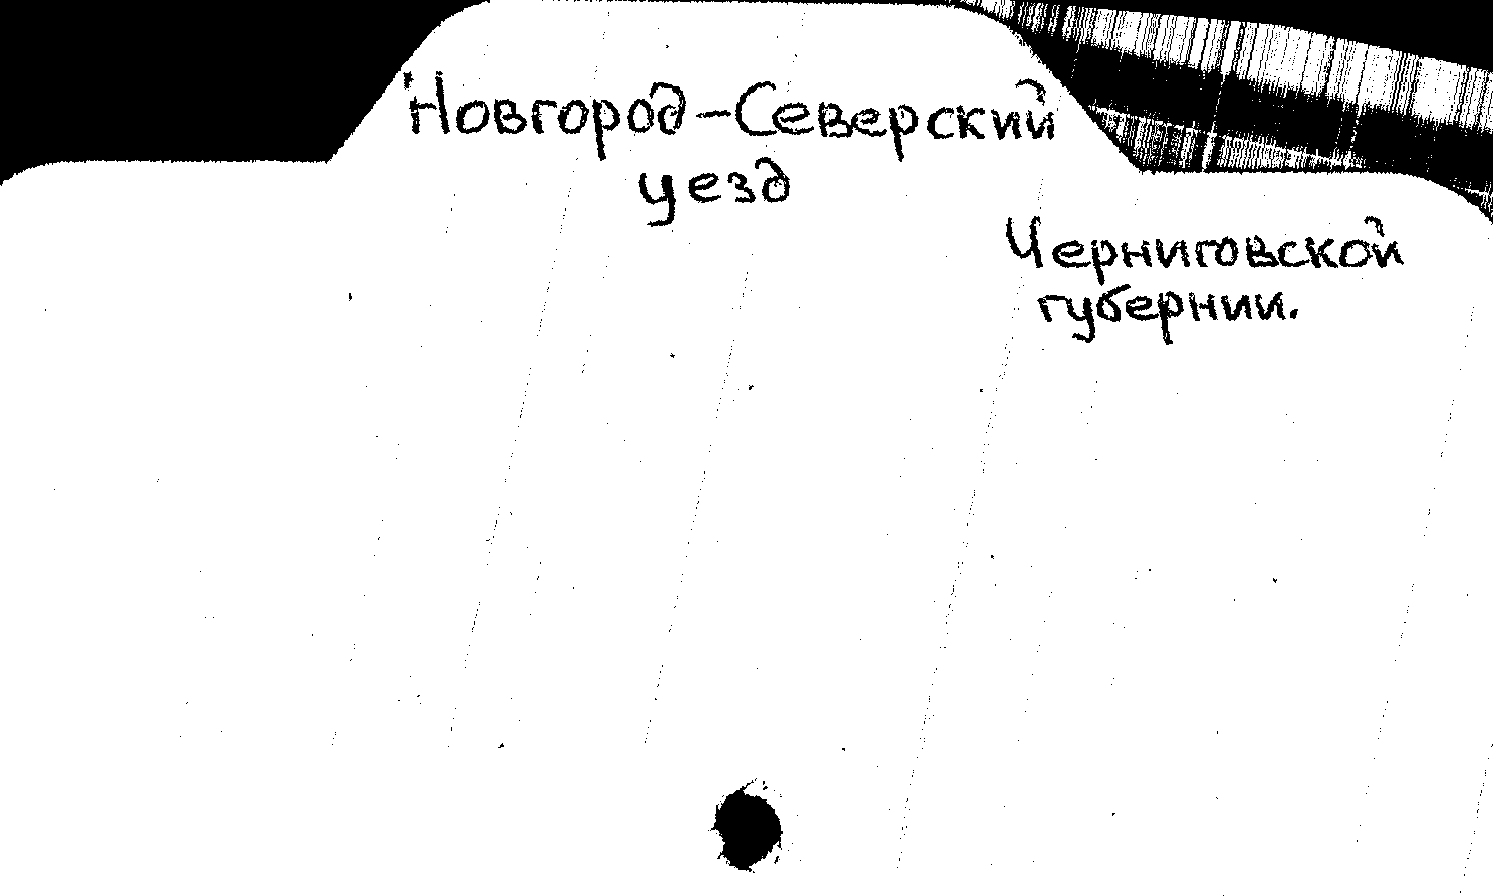 Новгород-Северский
уезд
Черниговской
губернии.